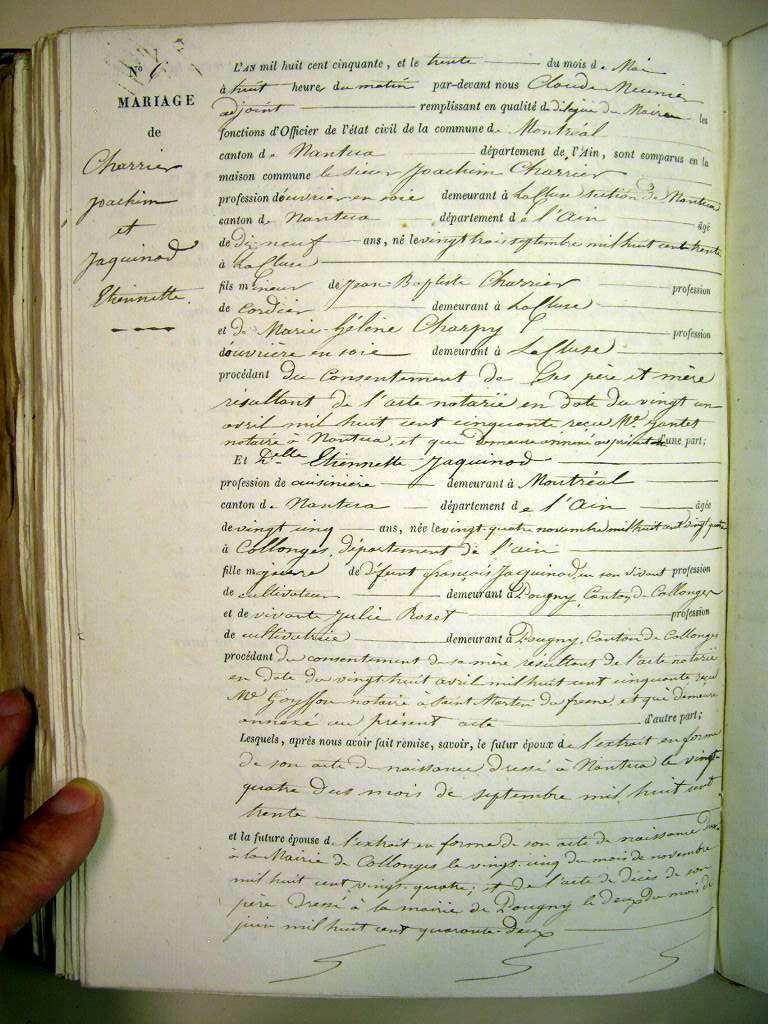 N° 6
MARIAGE
de
Charrier
Joachim
et
Jaquinod
Etiennette.
L'AN mil huit cent cinquante, et le trente du mois de Mai
à huit heure du matin par-devant nous Claude Meunier
adjoint remplissant en qualité de délégué du Maire les
fonctions d'Officier de l'état civil de la commune de Montréal
canton de Nantua département de l'Ain, sont comparus en la
maison commune le sieur Joachim Charrier
profession d'ouvrier en soie demeurant à La Cluse section de Nantua
canton de Nantua département de l'Ain âgé
de dix neuf ans, né le vingt trois septembre mil huit cent trente
à La Cluse
fils mineur de Jean Baptiste Charrier profession
de Cordier demeurant à La Cluse
et de Marie Hélène Charpy profession
d'ouvrière en soie demeurant à La Cluse
procédant du consentement de ses père et mère
résultant de l'acte notarié en date du vingt un
avril mil huit cent cinquante reçu Me Jantet
notaire à Nantua, et qui demeure annexé au présent d'une part;
Et Delle Etiennette Jaquinod
profession de cuisinière demeurant à Montréal
canton de Nantua département de l'Ain âgée
de vingt cinq ans, née le vingt quatre novembre mil huit cent vingt quatre
à Collonges, département de l'ain
fille majeure de défunt françois Jaquinod, en son vivant profession
de cultivateur demeurant à Pougny, Canton de Collonges
et de vivante Julie Roset profession
de cultivatrice demeurant à Pougny, Canton de Collonges
procédant du consentement de sa mère résultant de l'acte notarié
en date du vingt huit avril mil huit cent cinquante reçu
Me Goyffon notaire à Saint Martin du fresne, et qui demeure
annexé au présent acte d'autre part;
Lesquels, après nous avoir fait remise, savoir, le futur époux de l'extrait en forme
de son acte de naissance dressé à Nantua le vingt-
quatre du mois de septembre mil huit cent
trente
et la future épouse de l'extrait en forme de son acte de naissance
à la Mairie de Collonges le vingt-cinq du mois de novembre
mil huit cent vingt-quatre; et de l'acte de décès de son
père dressé à la mairie de Pougny le deux du mois de
juin mil huit cent quarante-deux